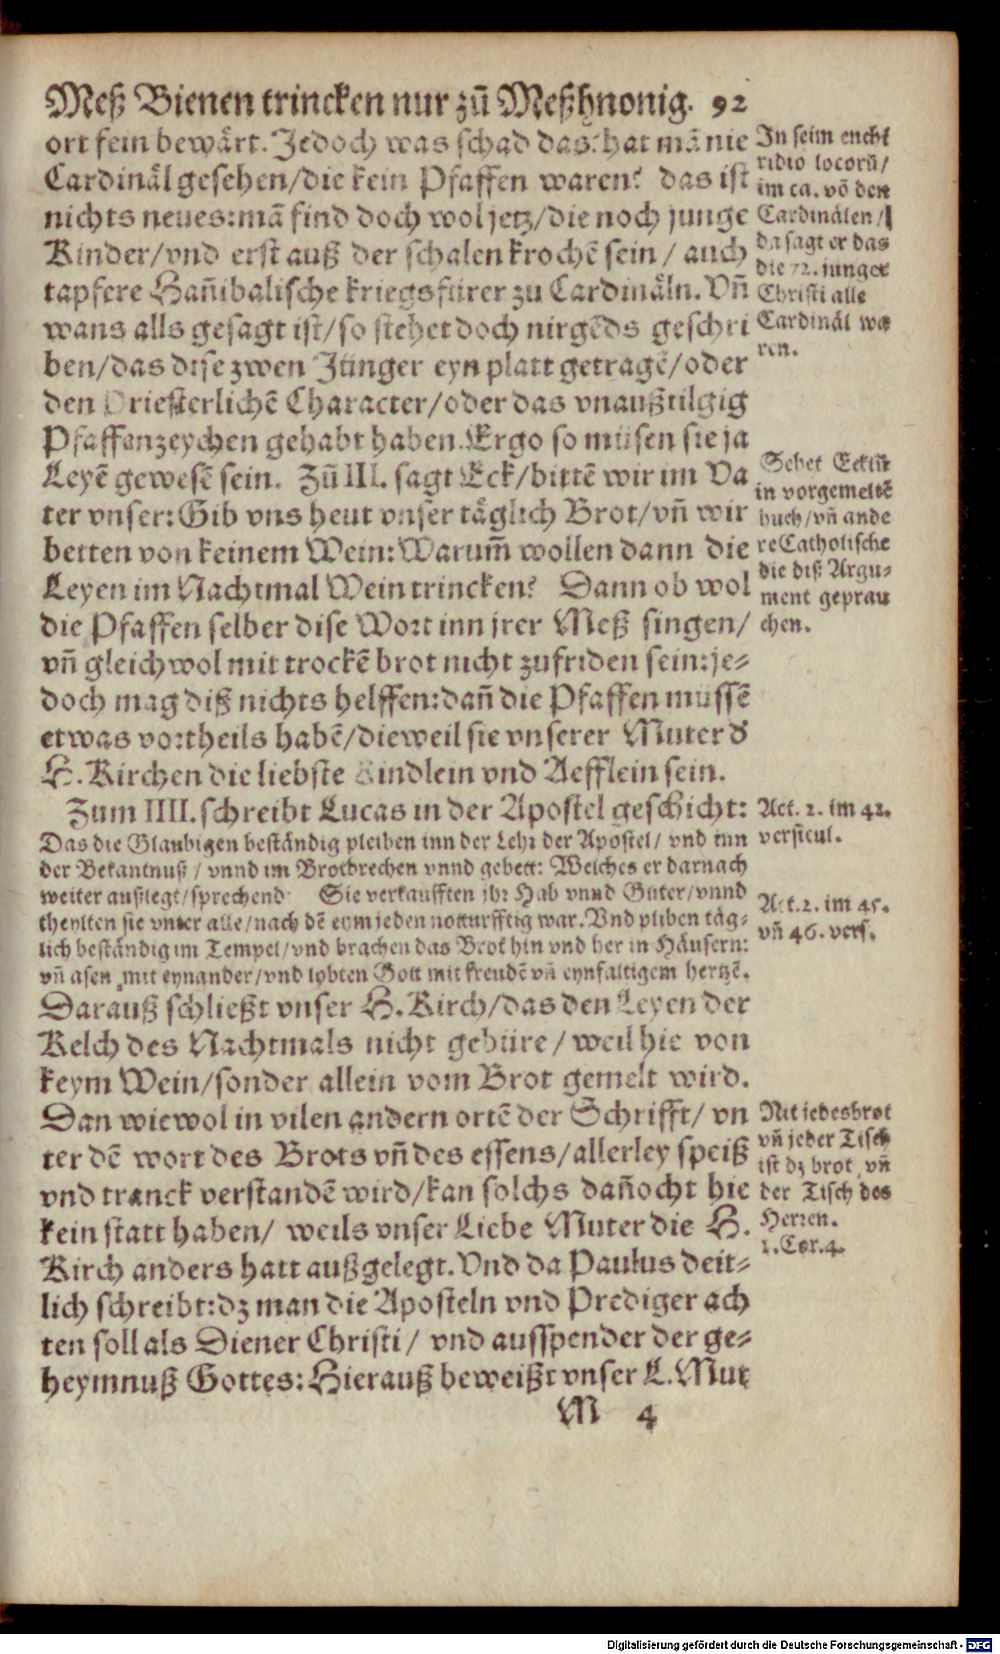 Meß Bienen trincken nur zū Meßhnonig. 92
ort fein bewärt. Jedoch was schad das: hat mā nie
Cardinäl gesehen/die kein Pfaffen waren? das ist
nichts neues: mā find doch wol jetz/die noch junge
Kinder/vnd erst auß der schalen krochē sein / auch
tapfere Hañibalische kriegsfürer zu Cardinäln. Vñ
wans alls gesagt ist/so stehet doch nirgēds geschri
ben/das dise zwen Jünger eyn platt getragē/oder
den Priesterlichē Character/oder das vnaußtilgig
Pfaffenzeychen gehabt haben. Ergo so müsen sie ja
Leyē gewesē sein. Zū III. sagt Eck/bittē wir im Va
ter vnser: Gib vns heut vnser täglich Brot/vñ wir
betten von keinem Wein: Warum̃ wollen dann die
Leyen im Nachtmal Wein trincken? Dann ob wol
die Pfaffen selber dise Wort inn jrer Meß singen/
vñ gleichwol mit trockē brot nicht zufriden sein: je-
doch mag diß nichts helffen: dañ die Pfaffen müssē
etwas vortheils habē/dieweil sie vnserer Muter d̕
H. Kirchen die liebste Kindlein vnd Aefflein sein.
Zum IIII. schreibt Lucas in der Apostel geschicht:
Das die Glaubigen beständig pleiben inn der Lehr der Apostel/ vnd inn
der Bekantnuß / vnnd im Brotbrechen vnnd gebett: Welches er darnach
weiter außlegt/sprechend Sie verkaufften jhr Hab vnnd Güter/vnnd
theylten sie vnter alle/nach dē eym jeden notturfftig war. Vnd pliben täg-
lich beständig im Tempel/vnd brachen das Brot hin vnd her in Häusern:
vñ asen mit eynander/vnd lobten Gott mit freudē vñ eynfaltigem hertzē.
Darauß schließt vnser H. Kirch/das den Leyen der
Kelch des Nachtmals nicht gebüre / weil hie von
keym Wein/sonder allein vom Brot gemelt wird.
Dan wiewol in vilen andern ortē der Schrifft/ vn
ter dē wort des Brots vñ des essens/allerley speiß
vnd tranck verstandē wird/kan solchs dañocht hie
kein statt haben/ weils vnser Liebe Muter die H.
Kirch anders hatt außgelegt. Vnd da Paulus deit-
lich schreibt: dz man die Aposteln vnd Prediger ach
ten soll als Diener Christi/ vnd ausspender der ge-
heymnuß Gottes: Hierauß beweißt vnser L. Mut
M 4
In seim enchi
ridio locorū/
im ca. vō den
Cardinälen/
da sagt er das
die 72. junger
Christi alle
Cardinäl wa
ren.
Sehet Eckiū
in vorgemeltē
buch/vñ ande
re Catholische
die diß Argu-
ment geprau
chen.
Act. 2. im 42.
versicul.
Act. 2. im 45.
vñ 46. vers.
Nit jedes brot
vñ jeder Tisch
ist dz brot vñ
der Tisch des
Herren.
1. Cor. 4.
Digitalisierung gefördert durch die Deutsche Forschungsgemeinschaft - DFG